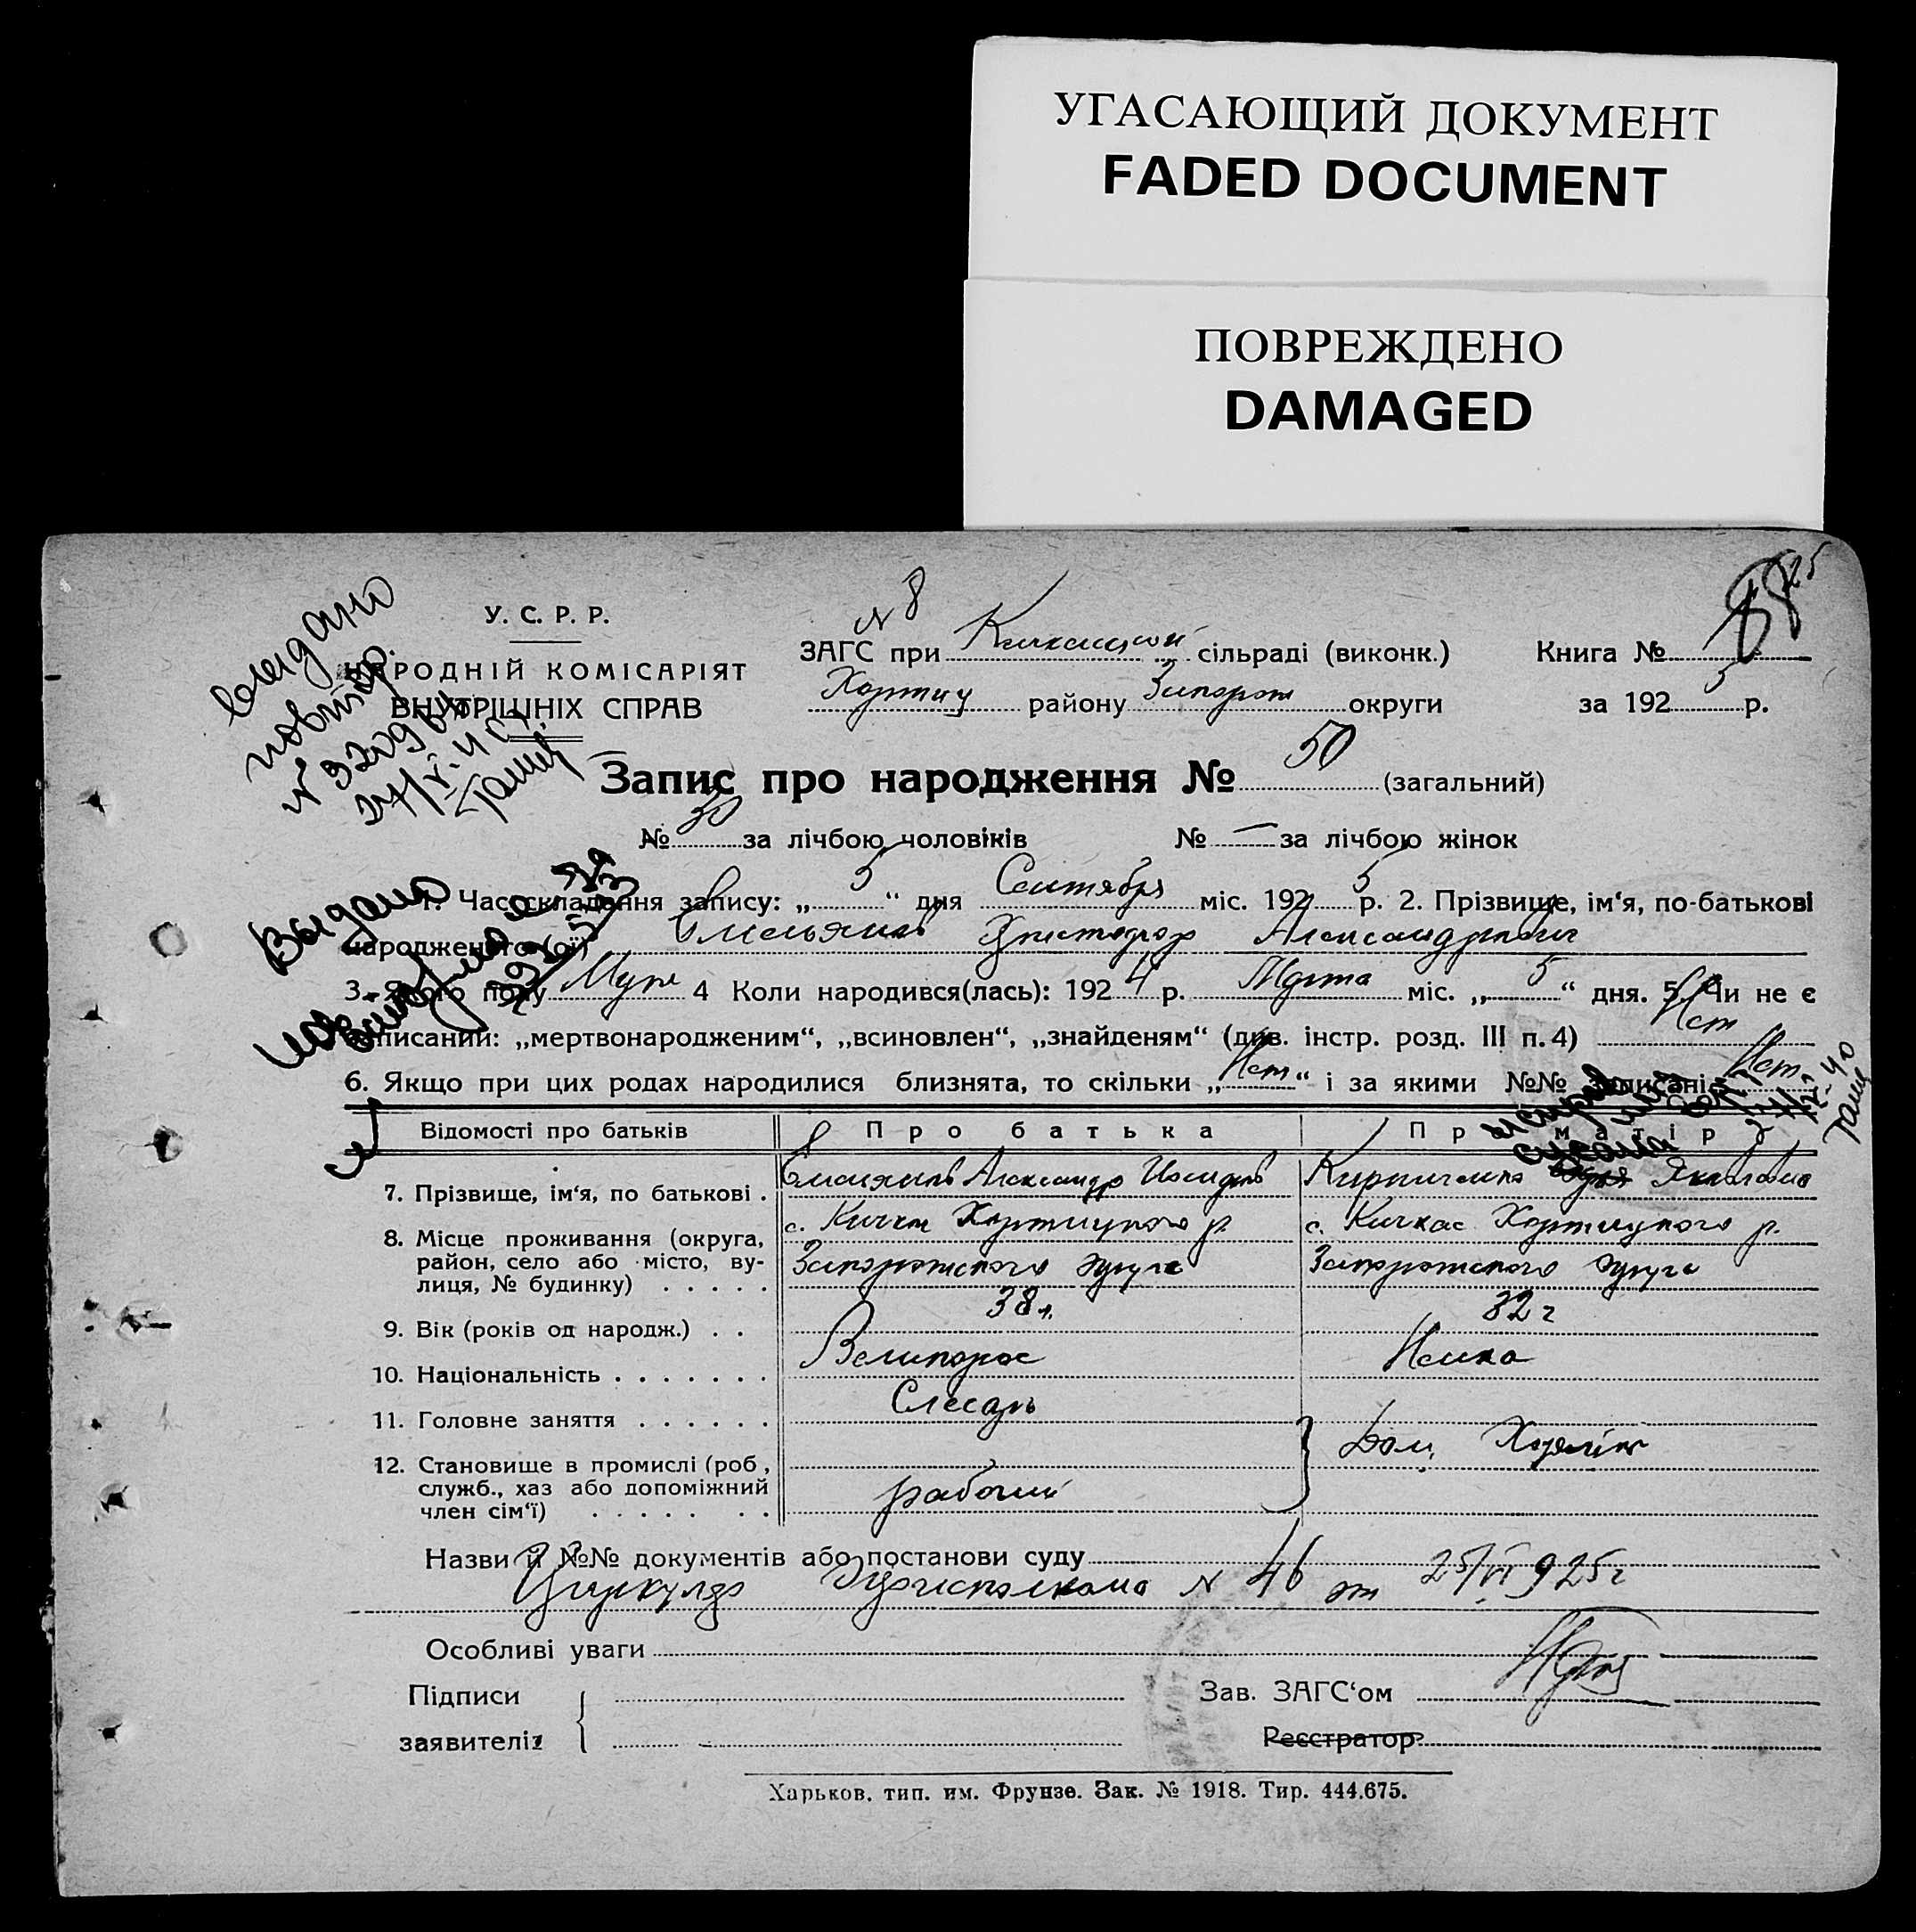 УГАСАЮЩИЙ ДОКУМЕНТ
FADED DOCUMENT
ПОВРЕЖДЕНО
DAMAGED
У. С. Р. Р.
НАРОДНІЙ КОМІСАРІЯТ
ВНУТРІШНІХ СПРАВ
N 8
ЗАГС при Кичкаской сільраді (виконк.)
Хортиц району Запорож округи
Книга № 8
за 1925 р.
Запис про народження № 50 (загальний)
№ 30 за лічбою чоловіків № — за лічбою жінок
1. Час складання запису: „5“ дня Сентября міс. 1925 р. 2. Прізвище, ім‘я, по-батькові
народженого (ої) Емельянов Христофор Александрович
3. Якого полу Муж 4 Коли народився(лась): 1924 р. Марта міс. „5“ дня. 5. Чи не є
записаний: „мертвонародженим“, „всиновлен“, „знайденям“ (див. інстр. розд. III п. 4) Нет
6. Якщо при цих родах народилися близнята, то скільки „Нет“ і за якими №№ записані Нет
Відомості про батьків Про батька Про матір
7. Прізвище, ім‘я, по батькові . Емельянов Александр Яковлевна
8. Місце проживання (округа, с. Кичкас Хортицкого р. с. Кичкас Хортицкого р.
район, село або місто, ву- Запорожского округа Запорожского округа
лиця, № будинку) . . . . .
9. Вік (років од народж.) . . 38 л. 32 г
10. Національність . . . . . . . Великорос Немка
11. Головне заняття . . . . . . Слесарь
Дом. Хозяйка
12. Становище в промислі (роб,
служб., хаз або допоміжний рабочий
член сім‘ї) . . . . . . .
Назви й №№ документів або постанови суду
Циркуляр Окрисполкома N 46 от 25/VI 925 г
Особливі уваги
Підписи
заявителів
Зав. ЗАГС‘ом
Реєстратор
Харьков. тип. им. Фрунзе. Зак. № 1918. Тир. 444.675.
выдано
повтор.
Выдано